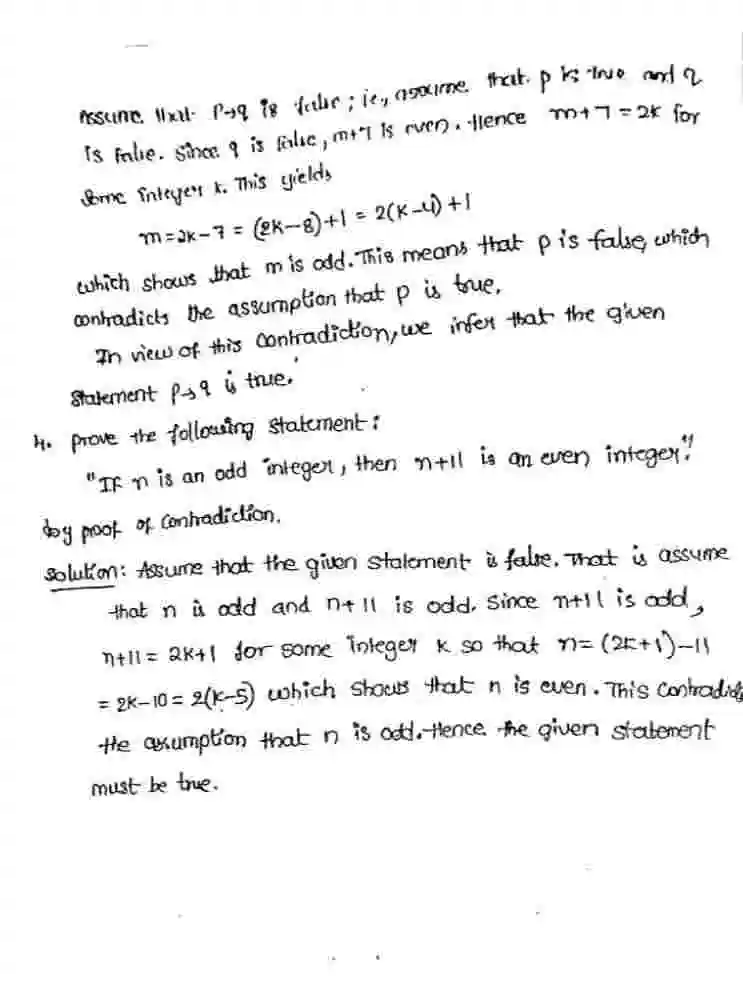 Assume that p→q is false; i.e., assume that p is true and q
is false. Since q is false, m+7 is even. Hence m+7 = 2k for
some integer k. This yields
m=2k-7 = (2k-8)+1 = 2(k-4)+1
which shows that m is odd. This means that p is false, which
contradicts the assumption that p is true.
In view of this contradiction, we infer that the given
statement p→q is true.
4. prove the following statement:
"If n is an odd integer, then n+11 is an even integer".
by proof of contradiction.
Solution: Assume that the given statement is false. That is assume
that n is odd and n+11 is odd. Since n+11 is odd,
n+11 = 2k+1 for some integer k so that n = (2k+1)-11
= 2k-10 = 2(k-5) which shows that n is even. This contradicts
the assumption that n is odd. Hence the given statement
must be true.